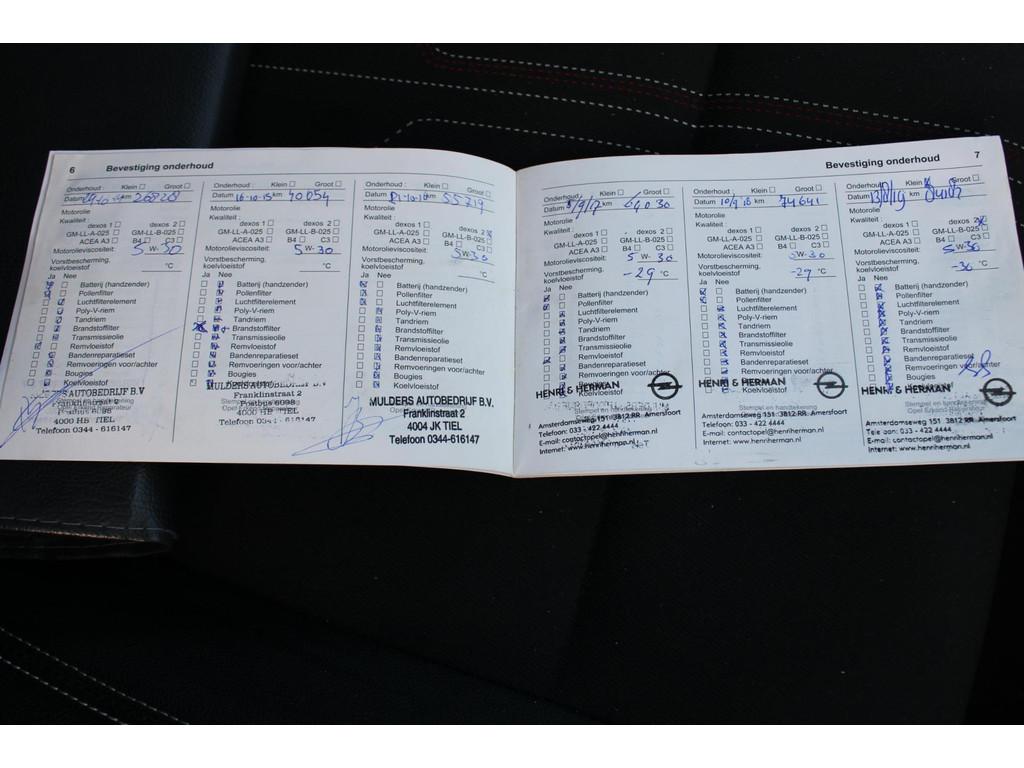 6 Bevestiging onderhoud
Onderhoud: Klein Groot
Datum km 26828
Motorolie
Kwaliteit:
dexos 1 dexos 2
GM-LL-A-025 GM-LL-B-025
ACEA A3 B4 C3
Motorolieviscositeit: 5 W- 30
Vorstbescherming,
koelvloeistof °C
Ja Nee
Batterij (handzender)
Pollenfilter
Luchtfilterelement
Poly-V-riem
Tandriem
Brandstoffilter
Transmissieolie
Remvloeistof
Bandenreparatieset
Remvoeringen voor/achter
Bougies
Koelvloeistof
MULDERS AUTOBEDRIJF B.V
Franklinstraat 2
Postbus 6098
4000 HB TIEL
Telefoon 0344 - 616147
Onderhoud: Klein Groot
Datum 16-10-15 km 40054
Motorolie
Kwaliteit:
dexos 1 dexos 2
GM-LL-A-025 GM-LL-B-025
ACEA A3 B4 C3
Motorolieviscositeit: 5 W- 30
Vorstbescherming,
koelvloeistof °C
Ja Nee
Batterij (handzender)
Pollenfilter
Luchtfilterelement
Poly-V-riem
Tandriem
Brandstoffilter
Transmissieolie
Remvloeistof
Bandenreparatieset
Remvoeringen voor/achter
Bougies
Koelvloeistof
MULDERS AUTOBEDRIJF B.V
Franklinstraat 2
Postbus 6098
4000 HB TIEL
Telefoon 0344 - 616147
Onderhoud: Klein Groot
Datum km 55719
Motorolie
Kwaliteit:
dexos 1 dexos 2
GM-LL-A-025 GM-LL-B-025
ACEA A3 B4 C3
Motorolieviscositeit: 5 W- 30
Vorstbescherming,
koelvloeistof °C
Ja Nee
Batterij (handzender)
Pollenfilter
Luchtfilterelement
Poly-V-riem
Tandriem
Brandstoffilter
Transmissieolie
Remvloeistof
Bandenreparatieset
Remvoeringen voor/achter
Bougies
Koelvloeistof
MULDERS AUTOBEDRIJF B.V.
Franklinstraat 2
4004 JK TIEL
Telefoon 0344-616147
Bevestiging onderhoud 7
Onderhoud: Klein Groot
Datum 8/9/17 km 64030
Motorolie
Kwaliteit:
dexos 1 dexos 2
GM-LL-A-025 GM-LL-B-025
ACEA A3 B4 C3
Motorolieviscositeit: 5 W- 30
Vorstbescherming,
koelvloeistof -29 °C
Ja Nee
Batterij (handzender)
Pollenfilter
Luchtfilterelement
Poly-V-riem
Tandriem
Brandstoffilter
Transmissieolie
Remvloeistof
Bandenreparatieset
Remvoeringen voor/achter
Bougies
Koelvloeistof
HENRI & HERMAN
Stempel en handtekening
Amsterdamseweg 151 3812 RR Amersfoort
Telefoon: 033 - 422 4444
E-mail: contactopel@henriherman.nl
Internet: www.henriherman.nl
Onderhoud: Klein Groot
Datum 10/9 18 km 74641
Motorolie
Kwaliteit:
dexos 1 dexos 2
GM-LL-A-025 GM-LL-B-025
ACEA A3 B4 C3
Motorolieviscositeit: 5W-30
Vorstbescherming,
koelvloeistof -29 °C
Ja Nee
Batterij (handzender)
Pollenfilter
Luchtfilterelement
Poly-V-riem
Tandriem
Brandstoffilter
Transmissieolie
Remvloeistof
Bandenreparatieset
Remvoeringen voor/achter
Bougies
Koelvloeistof
HENRI & HERMAN
Stempel en handtekening
Amsterdamseweg 151 3812 RR Amersfoort
Telefoon: 033 - 422 4444
E-mail: contactopel@henriherman.nl
Internet: www.henriherman.nl
Onderhoud: Klein Groot
Datum km
Motorolie
Kwaliteit:
dexos 1 dexos 2
GM-LL-A-025 GM-LL-B-025
ACEA A3 B4 C3
Motorolieviscositeit: 5 W- 30
Vorstbescherming,
koelvloeistof °C
Ja Nee
Batterij (handzender)
Pollenfilter
Luchtfilterelement
Poly-V-riem
Tandriem
Brandstoffilter
Transmissieolie
Remvloeistof
Bandenreparatieset
Remvoeringen voor/achter
Bougies
Koelvloeistof
HENRI & HERMAN
Stempel en handtekening
Amsterdamseweg 151 3812 RR Amersfoort
033 - 422 4444
E-mail: contactopel@henriherman.nl
Internet: www.henriherman.nl